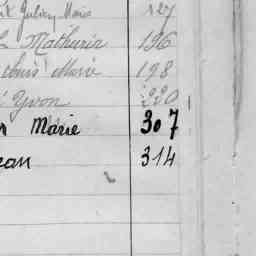 Julien Marie 127
Mathurin 196
Louis Marie 198
Yvon 220
Marie 307
ean 314